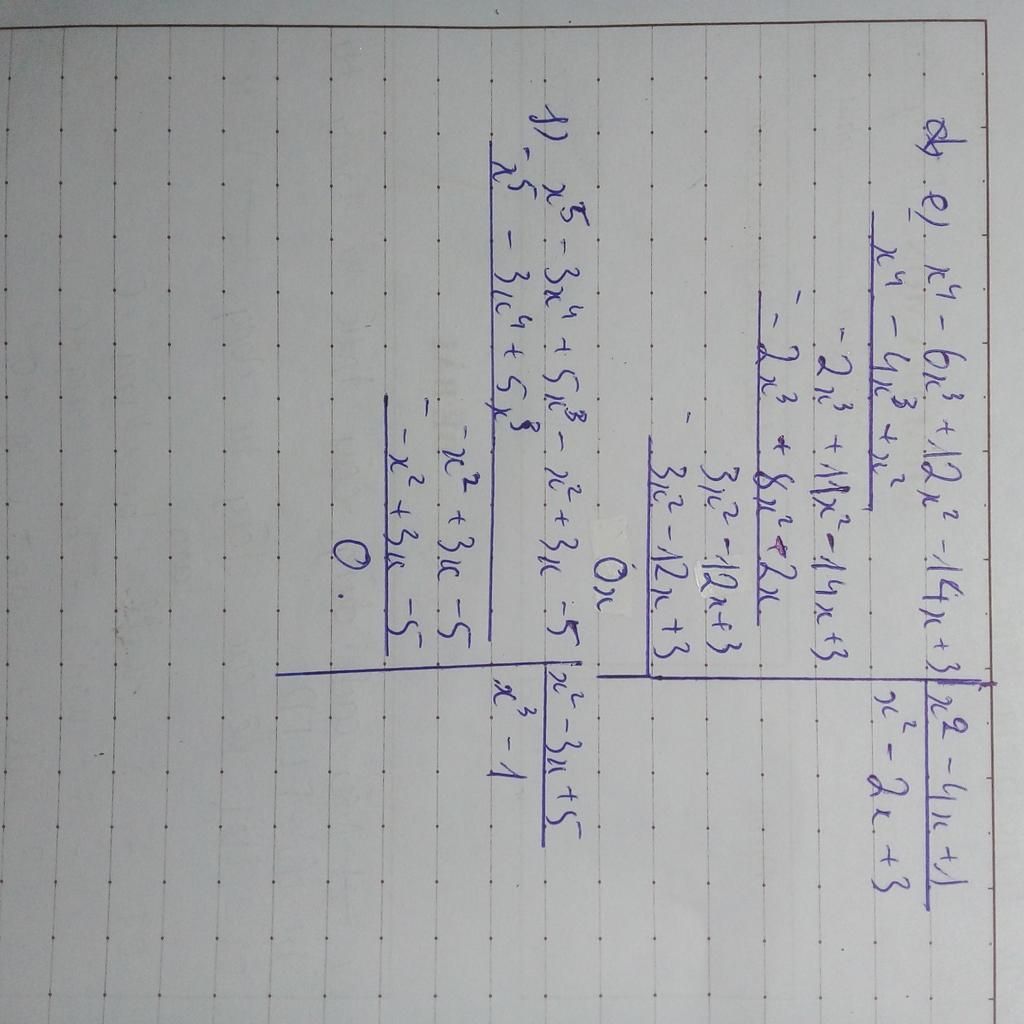 e) x⁴ - 6x³ + 12x² - 14x + 3 | x² - 4x + 1
- x⁴ - 4x³ + x² | x² - 2x + 3
- 2x³ + 11x² - 14x + 3
- - 2x³ + 8x² - 2x
3x² - 12x + 3
- 3x² - 12x + 3
0x
f) x⁵ - 3x⁴ + 5x³ - x² + 3x - 5 | x² - 3x + 5
- x⁵ - 3x⁴ + 5x³ | x³ - 1
- x² + 3x - 5
- - x² + 3x - 5
0.